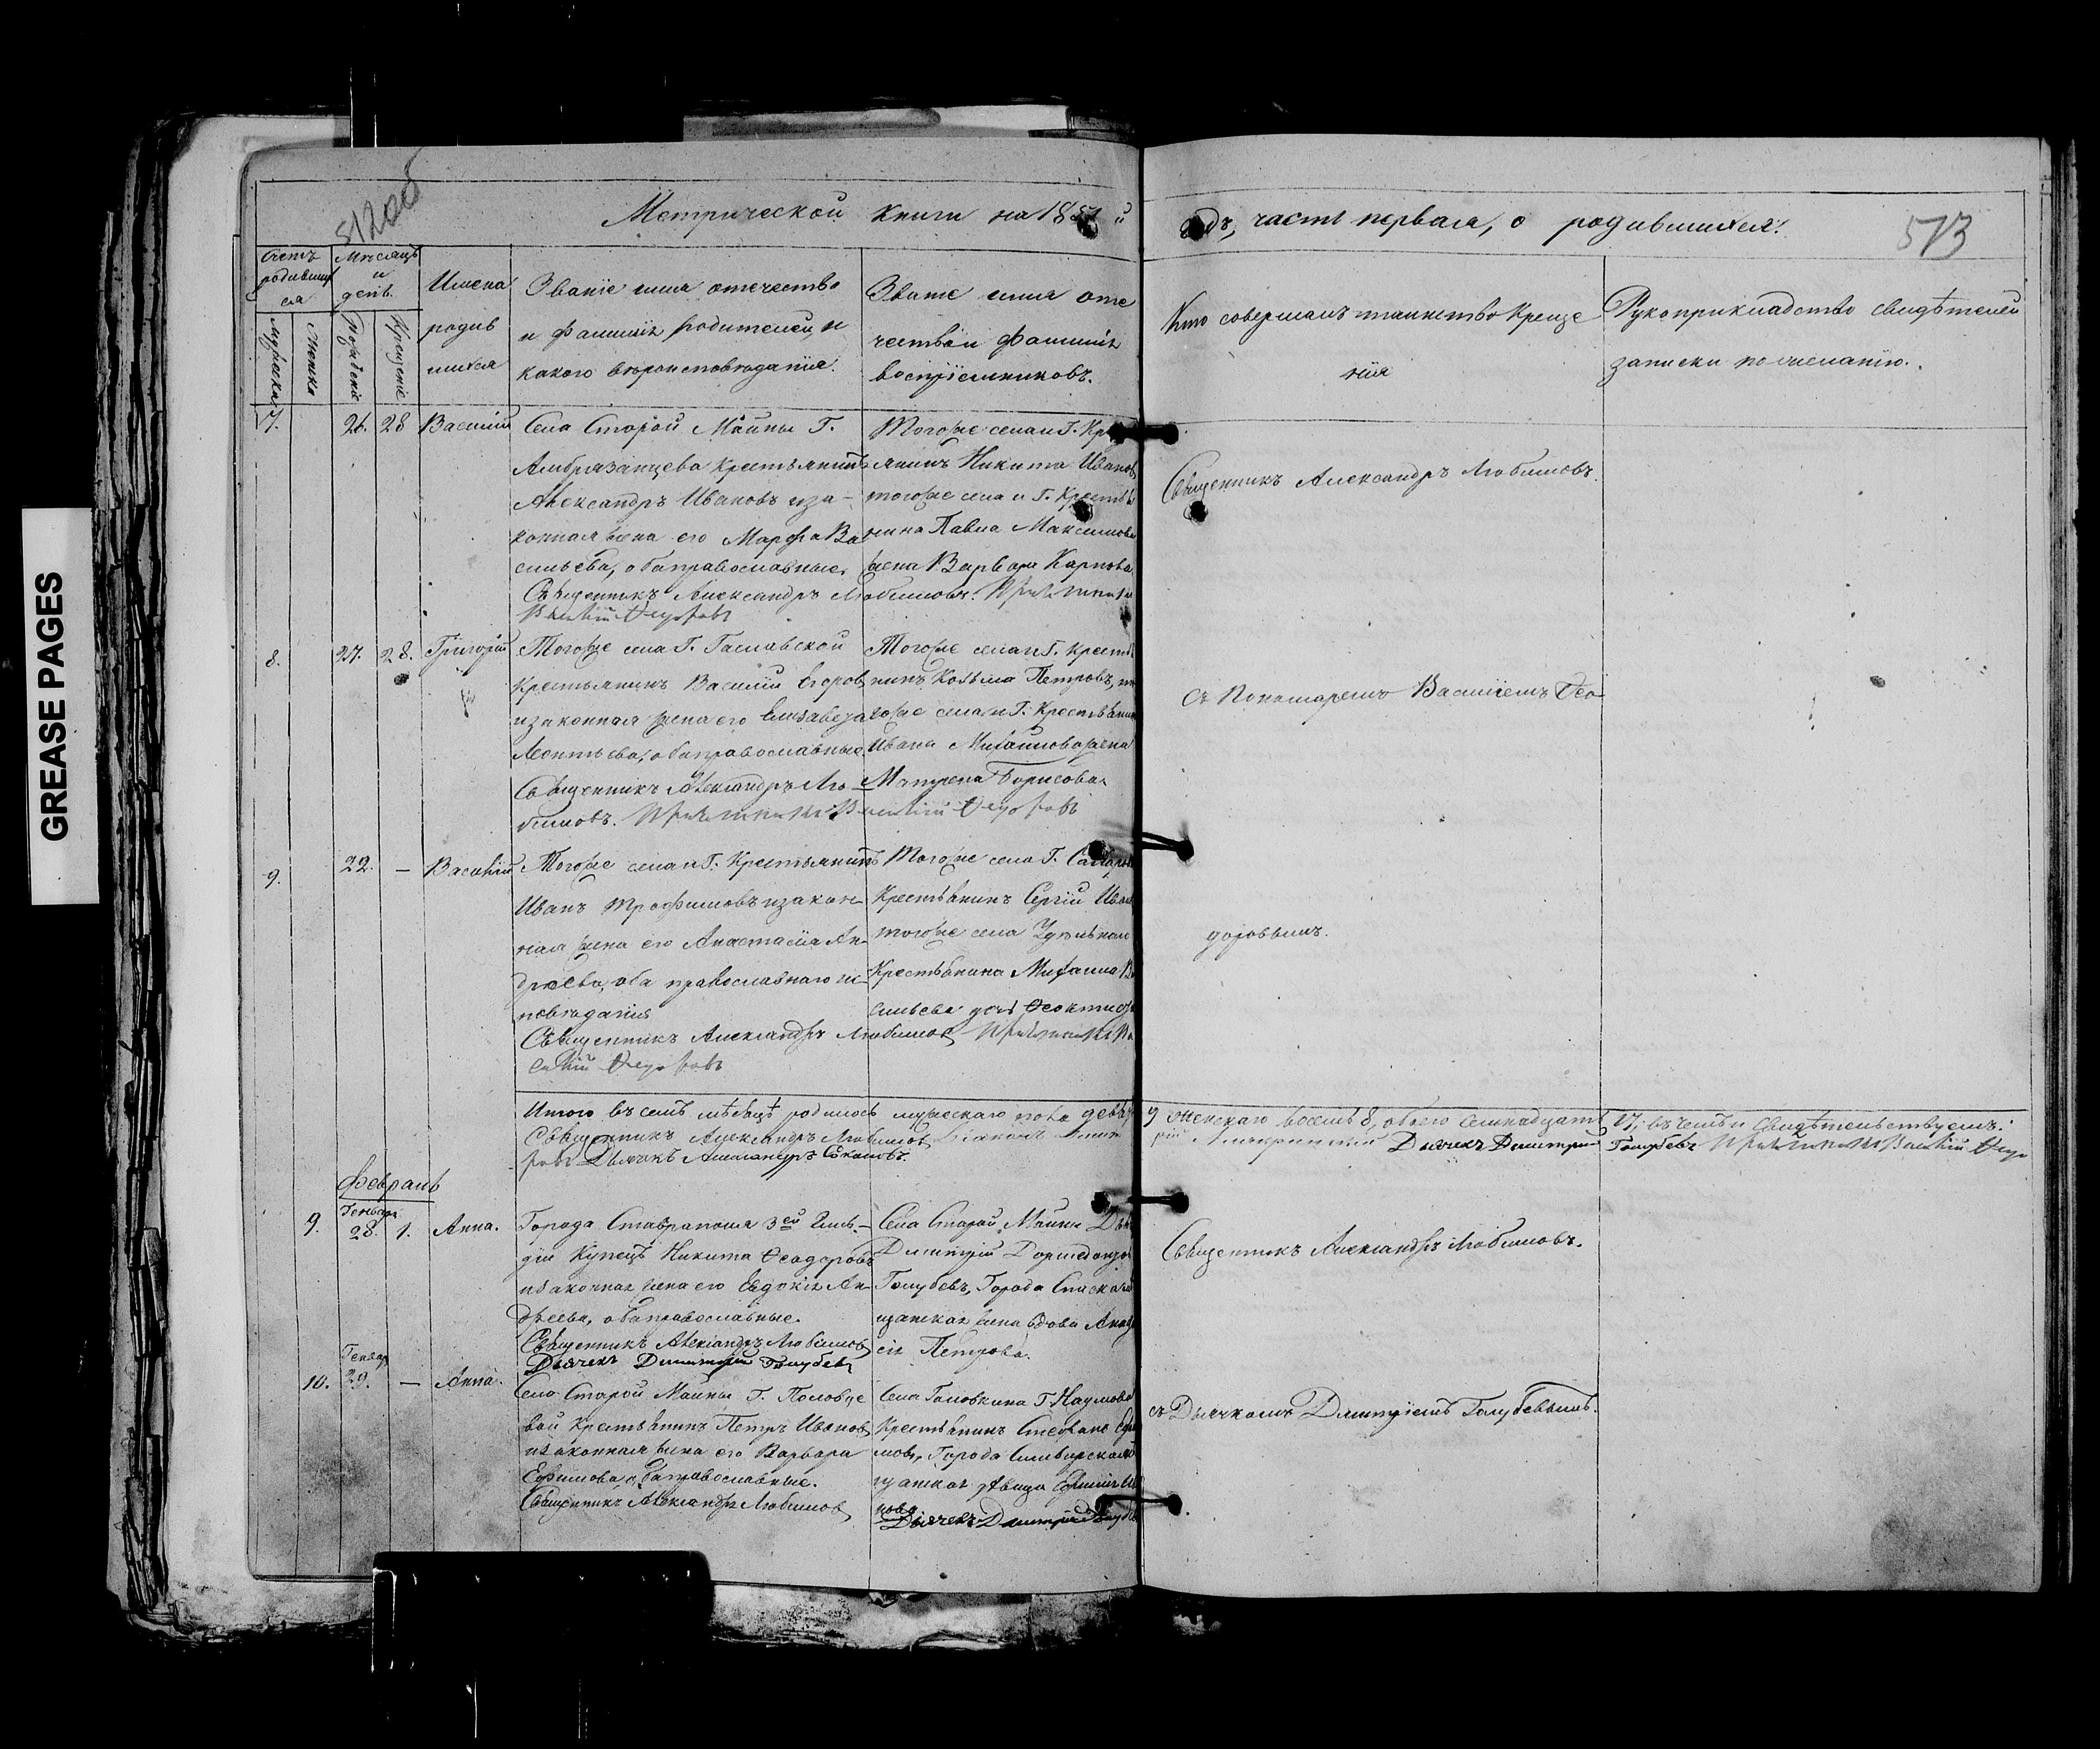 GREASE PAGES
512об
Метрической книги на 1851 й
годъ, часть первая, о родившихся.
513
Счетъ родившихся
Мѣсяцъ и день.
Мужеска
Женска
Рожденіе
Крещеніе
Имена
родив
шихся
Званіе имя отечество
и фамилія родителей, и
какого вѣроисповѣданія.
Званіе имя оте
чество и фамилія
воспріемниковъ.
Кто совершалъ таинство Креще
нія
Рукоприкладство свидѣтелей
записки по желанію.
7. 26. 28 Василій
Села Старой Майны Г.
Амбразанцева Крестьянинъ
Александръ Ивановъ иза-
конная жена его Марфа Ва
сильева, оба православные.
Священникъ Александръ Любимовъ.
Василій Ѳедоровъ
Тогоже села и Г. Кре
янинъ Никита Ивановъ
тогоже села и Г. Крестья
нина Павла Максимова
жена Варвара Карпова
Священникъ Александръ Любимовъ.
8. 27. 28. Григорій
Тогоже села Г.
Крестьянинъ Василій Егоровъ
изаконная жена его Елизавета
Леонтьева, оба православные.
Священникъ Александръ Лю-
бимовъ. Василій Ѳедоровъ
Тогоже села и Г. Кресть
нинъ Козьма Петровъ,
гоже села и Г. Крестьянина
Ивана Михаилова жена
Матрена Борисова.
Съ Пономаремъ Василіемъ Ѳео
9. 22. — Василій
Тогоже села и Г. Крестьянинъ
Иванъ Трофимовъ изакон-
ная жена его Анастасія Ан-
дреева, оба православнаго ис-
повѣданія
Священникъ Александръ Любимовъ
силій Ѳедоровъ
Тогоже села Г.
Крестьянинъ Сергій Иван
тогоже села Удѣльнаго
Крестьянина Михаила Ва
сильева дочь Ѳеоктиста
доровымъ.
Итого въ семъ мѣсяцѣ родилось мужескаго пола девять
9 женскаго восемь 8, обоего семнадцать 17, въ чемъ и свидѣтельствуемъ:
Священникъ Александръ Любимовъ
Дьячекъ Александръ Соколовъ.
Дьячекъ Димитрій Голубевъ Василій Ѳедо
Февраль
Генваря
9. 28. 1. Анна.
Города Ставрополя 3ей Гиль-
діи Купецъ Никита Ѳеодоровъ
изаконная жена его Евдокія Ан-
дреева, оба православные.
Священникъ Александръ Любимовъ
Дьячекъ Димитрій Голубевъ
Села Старой Майны Дья
Димитрій
Голубевъ, Города
щанская жена вдова
сія Петрова.
Священникъ Александръ Любимовъ.
Генваря
10. 29. — Анна.
Села Старой Майны Г. Половце
вой Крестьянинъ Петръ Ивановъ
изаконная жена его Варвара
Ефимова, оба православные.
Священникъ Александръ Любимовъ
Села Головкина Г. Наумова
Крестьянинъ Стефанъ Ефи
мовъ, Города Симбирска
щанская дѣвица
нова.
Дьячекъ Димитрій Голубевъ
съ Дьячкомъ Димитріемъ Голубевымъ.